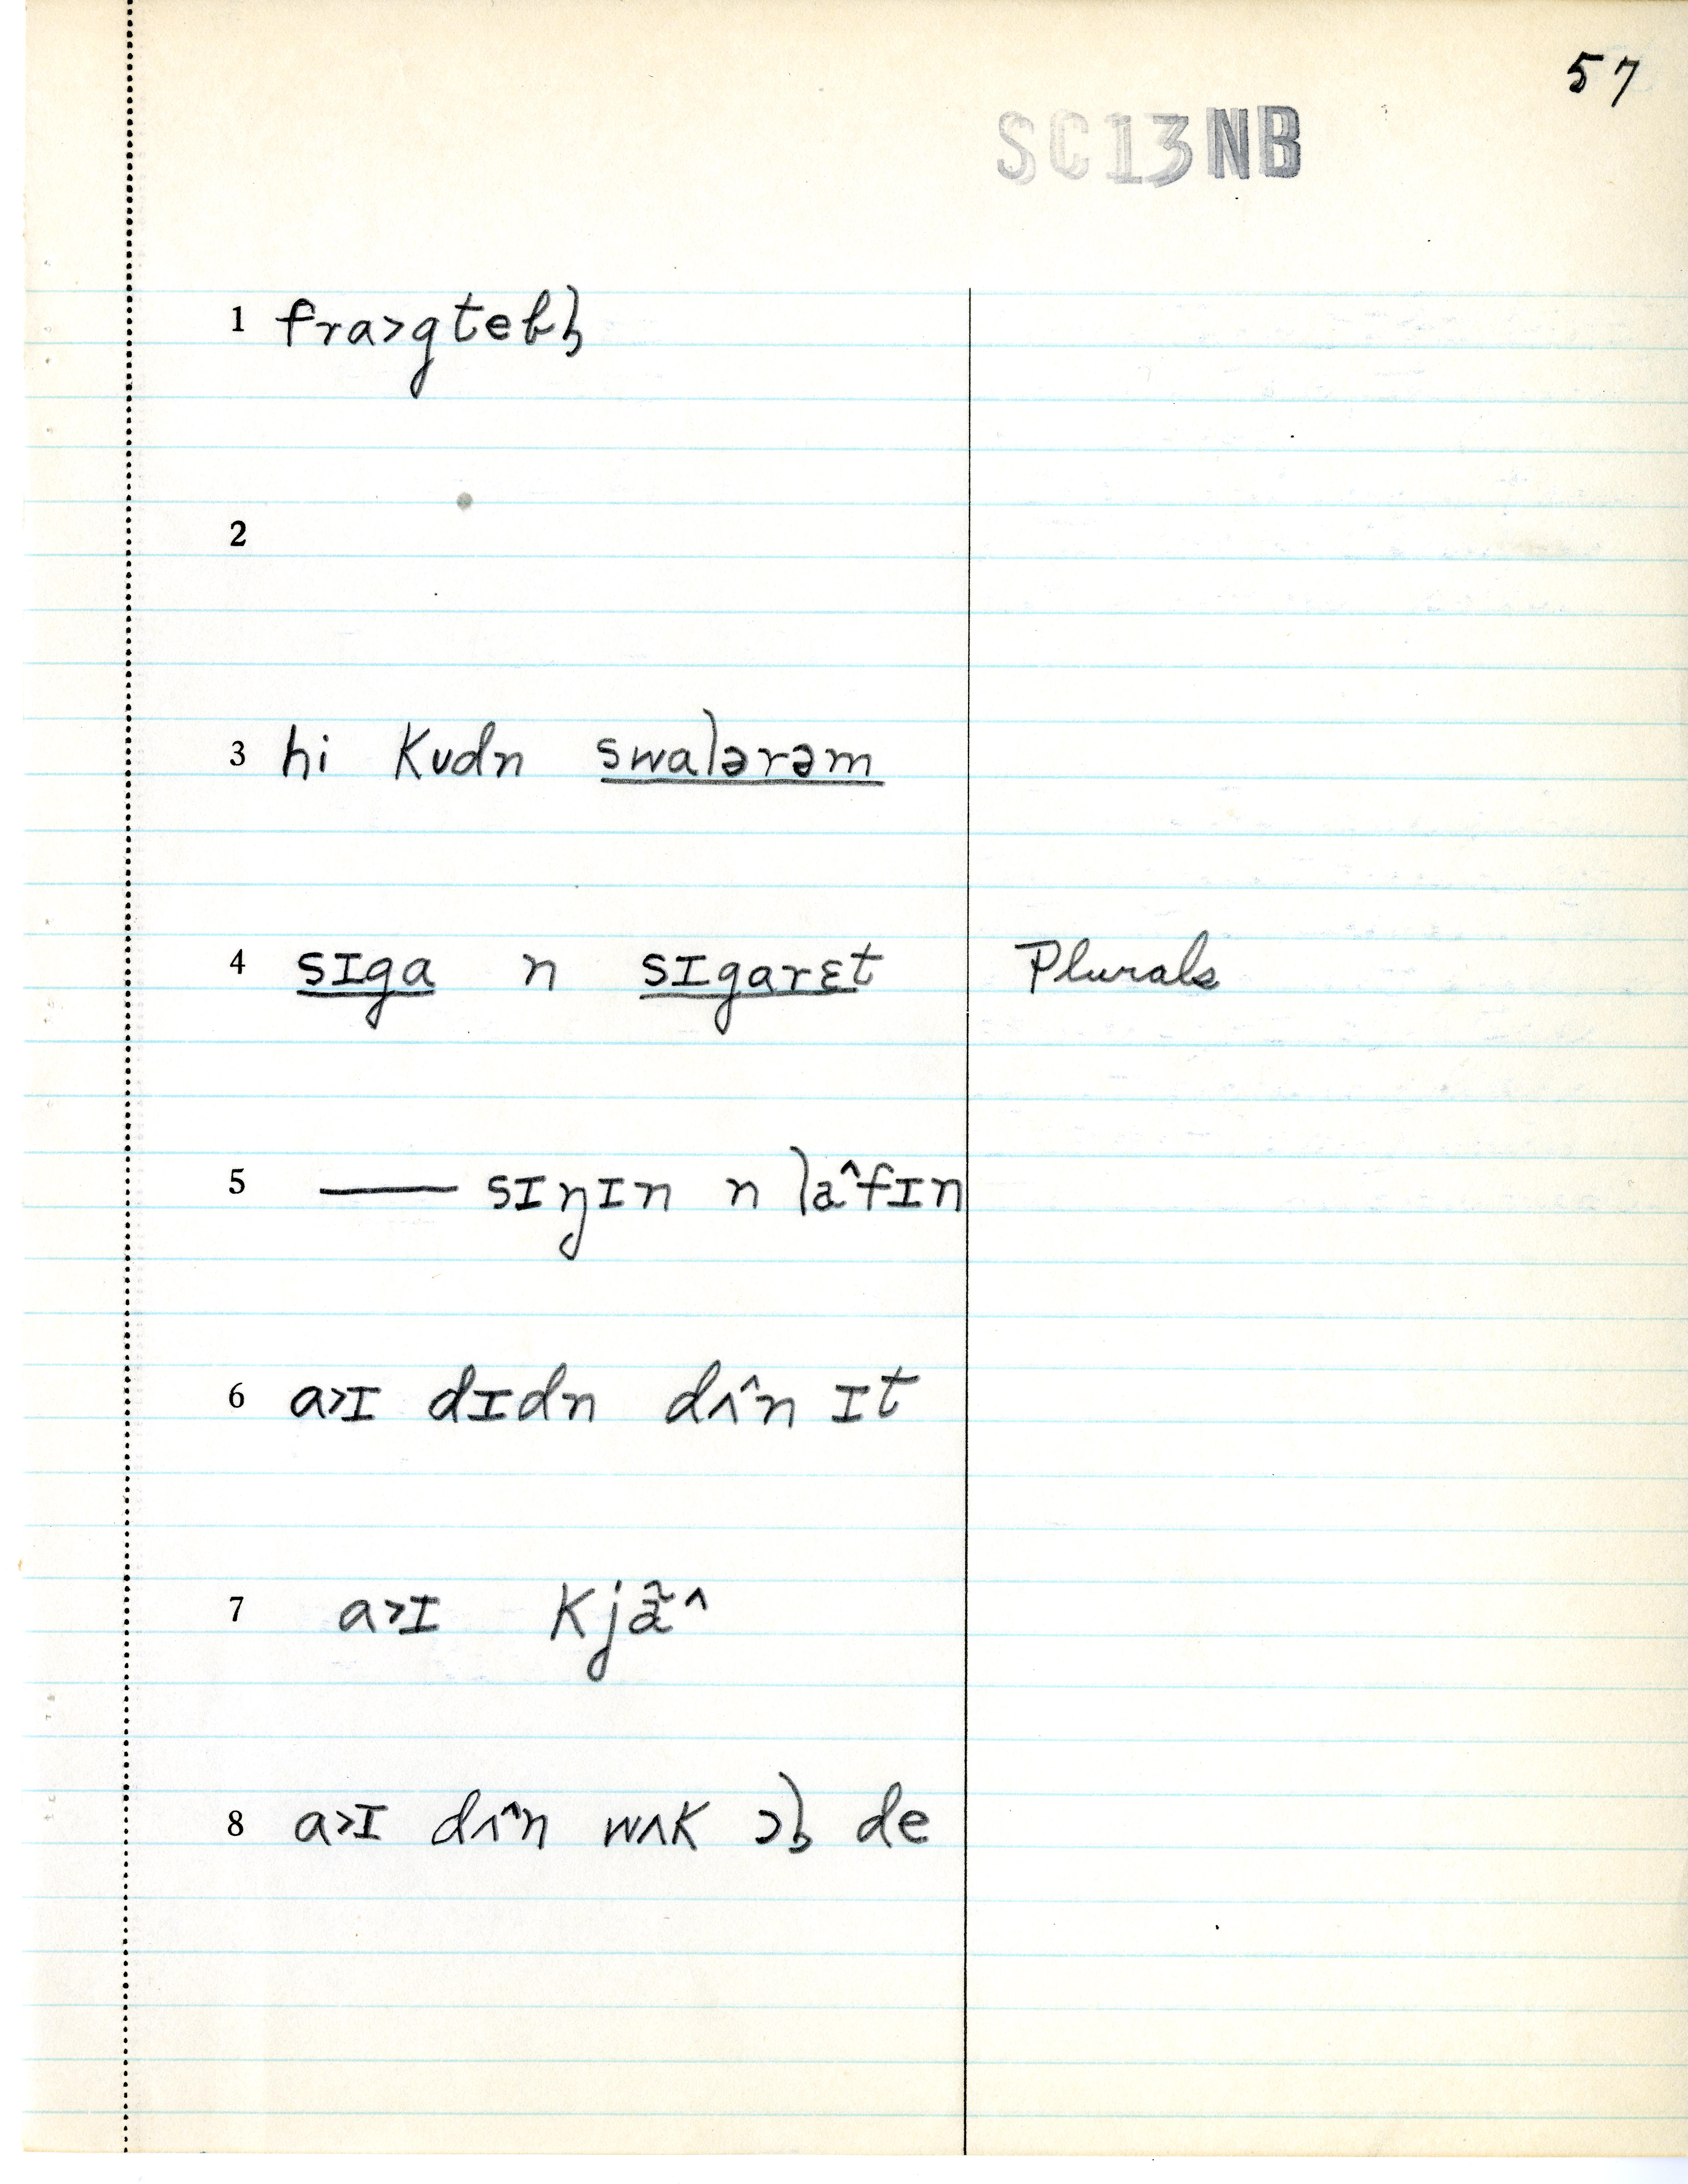 57
SC13NB
1 fra>gtebḷ
2
3 hi kudn swalərəm
4 sɪga n sɪgarɛt Plurals
5 — sɪŋɪn n la^fɪn
6 a>ɪ dɪdn dʌ^n ɪt
7 a>ɪ kjã^
8 a>ɪ dʌ^n wʌk ɔḷ de